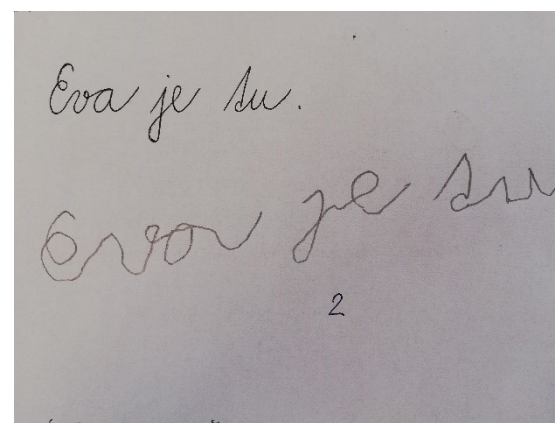 Eva je su.
Eva je su
2